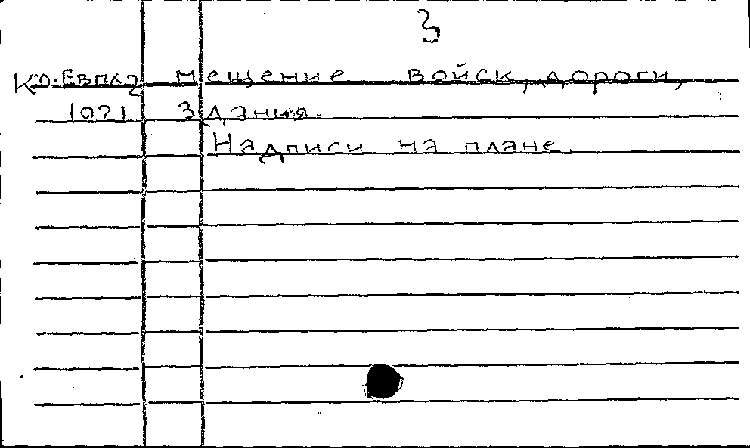 3
Ко.Евпа2 мещение войск, дороги,
1071 здания.
Надписи на плане.